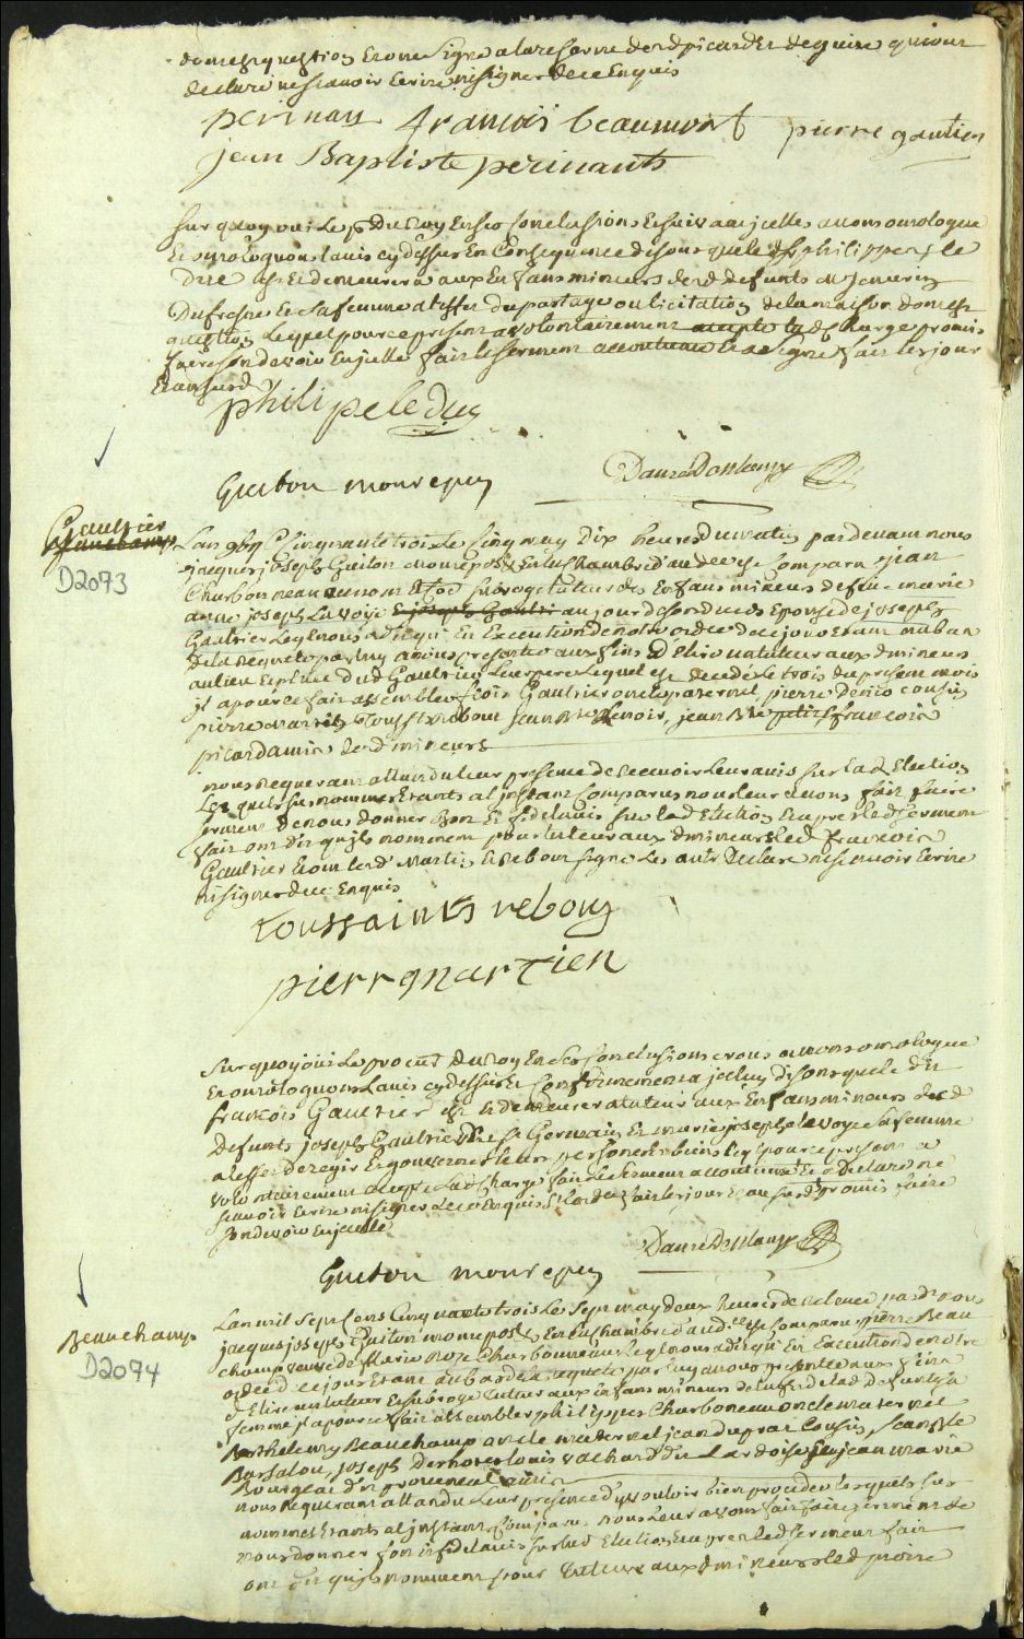 question Et ont signé a la reserve desd picard Et deguire qui ont
declaré ne scavoir Ecrire ni signer de ce Enquis
perinau françois beaumont pierre gautier
jean Baptiste perinault
Sur quoy oui Le pr Du Roy En ses Conclussions Et suivant jcelles avons omologué
Et omologuons lavis cy dessus En Consequence disons que led philippe le
Duc est Et demeurera aux Enfans mineurs desd defunts
Dufresne Et sa femme a leffet du partage ou licitation de la maison dont est
question Lequel pour ce present a volontairement accepte lad Charge promis
faire son devoir En jcelle fait le serment accoutumé Et a signé fait les jour
Et an susd
philipe le duc
Guiton monrepos
Danré Deblanzy
Gaultier
D2073
Lan 1753 Cinquante trois Le Cinq may Dix heures du matin pardevant nous
jacques joseph Guiton monrepos En lad Chambre d'audience Comparu jean
Charbonneau au nom Et Comme subrogé tuteur des Enfans mineurs de feue marie
anne joseph Lavoye au jour de son deces Epouse de joseph
Gaultier Lequel nous a dit qu En Execution de notre ordce de ce jour Etant au bas
de la Requete par luy a nous presentée aux fins d Elire un tuteur aux d mineurs
au lieu Et place dud Gaultier Leur pere Lequel est decedé le trois du present mois
il a pour ce fait assembler fcois Gaultier oncle paternel, pierre cousin
pierre martin Touss Rebour jean Bte Lenoir, jean Bte petit, françois
picard amis desd mineurs
nous Requerant attendu leur presence de Recevoir Leur avis sur lad Election
Les quels susnommes Etants a l jnstant Comparus nous leur avons fait faire
serment de nous donner Bon Et fidel avis sur lad Election Et apres led serment
fait ont dit qu jls nomment pour tuteur aux d mineurs led francois
Gaultier Et ont lesd Martin Et Rebour signé Les autr Declaré ne scavoir Ecrire
ni signer de ce Enquis
toussaints rebour
pierre martien
Sur quoy oui Le procur Du Roy En ses Conclusions nous avons omologué
Et omologuons Lavis cy dessus Et Conformement a jceluy disons que le dit
francois Gaultier est Et demeurera tuteur aux Enfans mineurs desd
Defunts joseph Gaultier dit St Germain Et marie joseph Lavoye sa femme
a leffet de regir Et gouverner leurs personnes Et biens Lequel pour ce present a
volontairement accepté Lad Charge fait Le serment accoutumé Et a Declaré ne
scavoir Ecrire ni signer de ce Enquis fait les jour Et an susd promis faire
son devoir En jcelle
Danré Deblanzy
Guiton monrepos
Beauchamp
D2074
Lan mil Sept Cens Cinquante trois Le Sept may deux heures de Relevée pardt nous
jacques joseph Guiton monrepos En La Chambre d'audce Est Comparu pierre Beau
champ veuf de Marie Roze Charbonneau Lequel nous a dit qu'En Execution de notre
ordce de ce jour Etant au bas de la requete par luy a nous presentée aux fins
d Elire un tuteur Et subrogé tuteur aux Enfans mineurs de luy Et de lad Defunte sa
femme jl a pour ce fait assembler philippes Charboneau oncle maternel
Barthelemy Beauchamp oncle jean duprat Cousin, jean Bte
Barsalou, joseph Derhover louis vachard Du Lardoise Et jean marie
Bourgeat d'it provencal amis
nous Requerant attendu Leur presence d'y vouloir bien proceder Lesquels sus
nommes Etants a l jnstant Comparus nous leur avons fait faire serment de
nous donner bon Et fidel avis sur lad Election Et apres led serment fait
ont dit qu jls nomment pour tuteur aux d mineurs led pierre